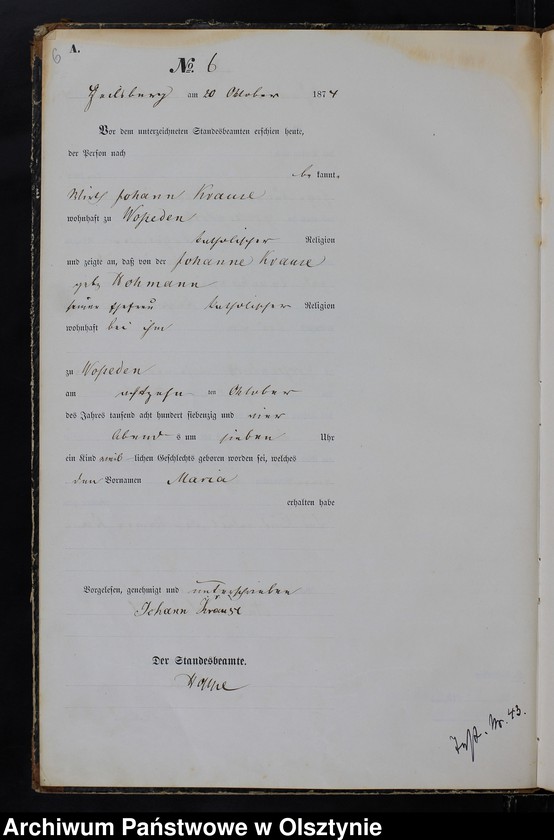 6
A.
No. 6
Heilsberg am 20 Oktober 1874
Vor dem unterzeichneten Standesbeamten erschien heute,
der Person nach
be kannt,
Wirth Johann Krause
wohnhaft zu Wosseden
katholischer Religion
und zeigte an, daß von der Johanne Krause
geb. Wohmann
seiner Ehefrau katholischer Religion
wohnhaft bei ihm
zu Wosseden
am achtzehn ten Oktober
des Jahres tausend acht hundert siebenzig und vier
Abend s um sieben Uhr
ein Kind weib lichen Geschlechts geboren worden sei, welches
den Vornamen Maria
erhalten habe
Vorgelesen, genehmigt und unterschrieben
Johann Krause
Der Standesbeamte.
Nr. 43.
Archiwum Państwowe w Olsztynie